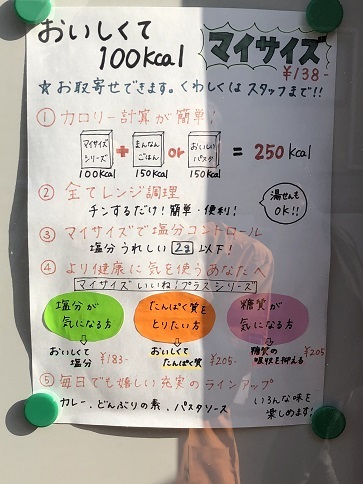 おいしくて
100kcal
マイサイズ
¥138-
☆お取寄せできます。くわしくはスタッフまで!!
① カロリー計算が簡単!
マイサイズ シリーズ + まんなん ごはん or おいしい パスタ = 250kcal
100kcal 150kcal 150kcal
② 全てレンジ調理
チンするだけ!簡単・便利!
湯せんも
OK!!
③ マイサイズで塩分コントロール
塩分うれしい 2g 以下!
④ より健康に気を使うあなたへ
マイサイズいいね!プラスシリーズ
塩分が
気になる方
たんぱく質を
とりたい方
糖質が
気になる方
おいしくて
塩分 ¥183-
おいしくて
たんぱく質 ¥205-
糖質の
吸収を抑える ¥205
⑤ 毎日でも嬉しい充実のラインアップ
カレー、どんぶりの素、パスタソース
いろんな味を
楽しめます!